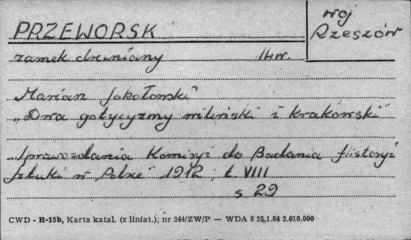 PRZEWORSK
woj
Rzeszów
zamek drewniany 14w.
Marian Sokołowski
„Dwa gotycyzmy wileński i krakowski"
„Sprawozdania Komisyi do Badania Historyi
Sztuki w Polsce" 1912, t. VIII
s 29
CWD - B-15b, Karta katal. (z liniat.), nr 244/ZW/P — WDA 8 25.1.64 2.010.000